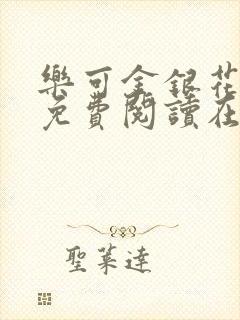 樂可金銀花
免費閱讀在
聖萊達